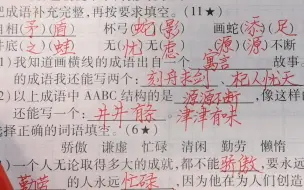 把成语补充完整,再按要求填空。(11★)
自相(矛)(盾) 杯弓(蛇)(影) 画蛇(添)(足)
井底(之)(蛙) 无(忧)(无)虑 (源)(源)不断
1)我知道画横线的成语出自一个 寓言 故事,
的成语我还能写两个:刻舟求剑、杞人忧天
2)以上成语中AABC结构的是 源源不断,像这样的
还能写一个:井井有条、津津有味
选择正确的词语填空。(6★)
骄傲 谦虚 忙碌 清闲 勤劳 懒惰
一个人无论取得多大的成就,都不能 骄傲,要永
勤劳 的人永远 忙碌,因为他在为人们创造